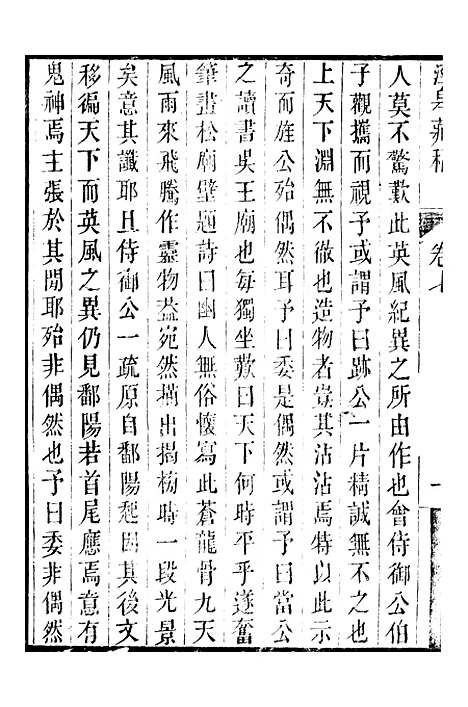 人莫不驚歎此英風紀異之所由作也會侍御公伯
子觀攜而視予或謂予曰跡公一片精誠無不之也
上天下淵無不徹也造物者豈其沾沾焉特以此示
奇而旌公殆偶然耳予曰委是偶然或謂予曰當公
之讀書吳王廟也每獨坐歎曰天下何時平乎遂奮
筆畫松廟壁題詩曰幽人無俗懷寫此蒼龍骨九天
風雨來飛騰作靈物益宛然描出揭榜時一段光景
矣意其讖耶且侍御公一疏原自鄱陽愆因其後文
移徧天下而英風之異仍見鄱陽若首尾應焉意有
鬼神焉主張於其閒耶殆非偶然也予曰委非偶然
卷七
一